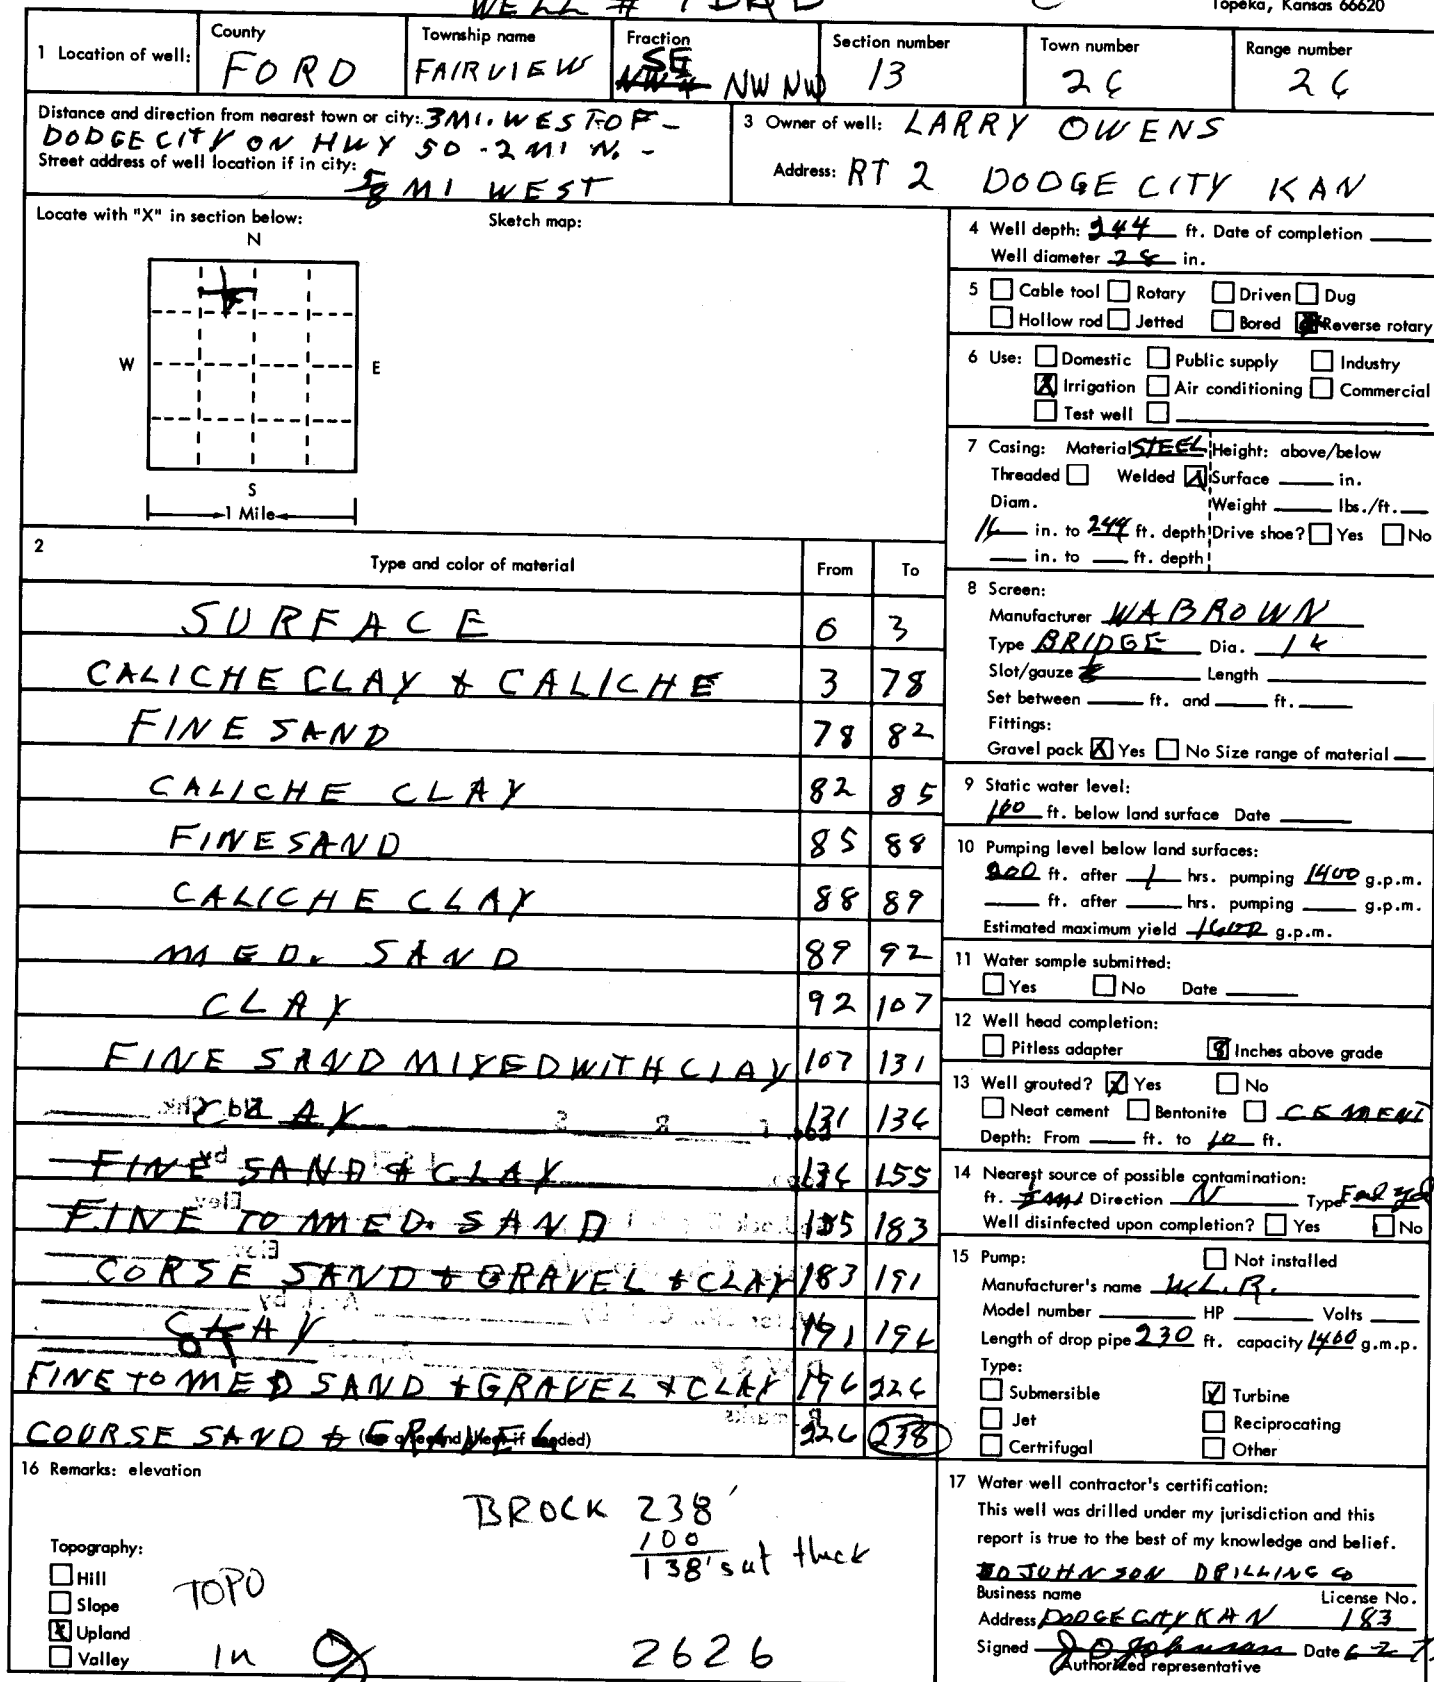 WELL #
Topeka, Kansas 66620
1 Location of well:
County
FORD
Township name
FAIRVIEW
Fraction
SE
NW 4 NW NW
Section number
13
Town number
26
Range number
26
Distance and direction from nearest town or city: 3 MI. WEST OF -
DODGE CITY ON HWY 50 - 2 MI N. -
Street address of well location if in city:
5/8 MI WEST
3 Owner of well: LARRY OWENS
Address: RT 2 DODGE CITY KAN
Locate with "X" in section below:
Sketch map:
N
W
E
S
1 Mile
2
Type and color of material
From
To
SURFACE 0 3
CALICHE CLAY & CALICHE 3 78
FINE SAND 78 82
CALICHE CLAY 82 85
FINE SAND 85 88
CALICHE CLAY 88 89
MED. SAND 89 92
CLAY 92 107
FINE SAND MIXED WITH CLAY 107 131
CLAY 131 136
FINE SAND & CLAY 136 155
FINE TO MED. SAND 155 183
CORSE SAND & GRAVEL & CLAY 183 191
CLAY 191 196
FINE TO MED SAND & GRAVEL & CLAY 196 226
COURSE SAND & GRAVEL 226 238
(use a second sheet if needed)
4 Well depth: 244 ft. Date of completion
Well diameter 28 in.
5 Cable tool Rotary Driven Dug
Hollow rod Jetted Bored Reverse rotary
6 Use: Domestic Public supply Industry
X Irrigation Air conditioning Commercial
Test well
7 Casing: Material STEEL Height: above/below
Threaded Welded X Surface in.
Diam. Weight lbs./ft.
16 in. to 244 ft. depth Drive shoe? Yes No
in. to ft. depth
8 Screen:
Manufacturer WA BROWN
Type BRIDGE Dia. 16
Slot/gauze Length
Set between ft. and ft.
Fittings:
Gravel pack X Yes No Size range of material
9 Static water level:
100 ft. below land surface Date
10 Pumping level below land surfaces:
200 ft. after 1 hrs. pumping 1400 g.p.m.
ft. after hrs. pumping g.p.m.
Estimated maximum yield 1600 g.p.m.
11 Water sample submitted:
Yes No Date
12 Well head completion:
Pitless adapter 8 Inches above grade
13 Well grouted? X Yes No
Neat cement Bentonite CEMENT
Depth: From ft. to 10 ft.
14 Nearest source of possible contamination:
ft. Direction N Type Feed yd
Well disinfected upon completion? Yes No
15 Pump: Not installed
Manufacturer's name W.L.R.
Model number HP Volts
Length of drop pipe 230 ft. capacity 1400 g.m.p.
Type:
Submersible Turbine
Jet Reciprocating
Certrifugal Other
16 Remarks: elevation
BROCK 238'
100
138' sat thick
Topography:
Hill
Slope
X Upland
Valley
TOPO
In
2626
17 Water well contractor's certification:
This well was drilled under my jurisdiction and this
report is true to the best of my knowledge and belief.
JOHNSON DRILLING CO
Business name License No.
Address DODGE CITY KAN 183
Signed J D Johnson Date 6-2-7
Authorized representative